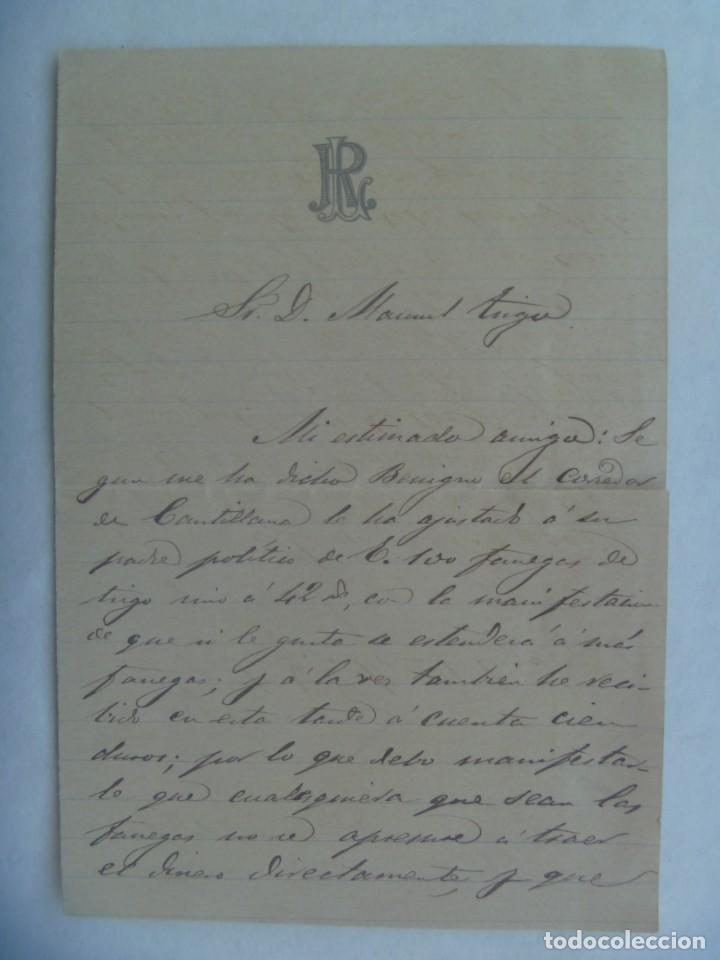 Sr. D. Manuel Trigo
Mi estimado amigo: Se
gun me ha dicho Benigno el corredor
de Cantillana le ha ajustado á su
padre político de V. 100 fanegas de
trigo mio á 42 rs, con la manifestacion
de que si le gusta se estenderá á más
fanegas; y á la vez tambien he reci-
bido en esta tarde á cuenta cien
duros; por lo que debo manifestar-
le que cualesquiera que sean las
fanegas no se apresure á traer
el dinero directamente, y que
todocoleccion.net